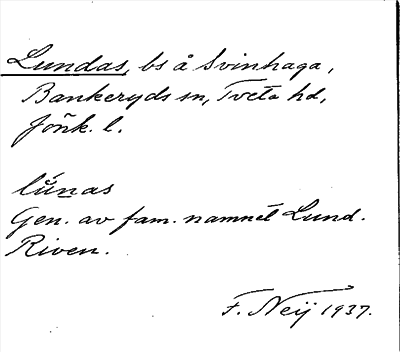 Lundas, bs å Svinhaga,
Bankeryds sn, Tveta hd,
Jönk. l.
lúnas
Gen. av fam. namnet Lund.
Riven.
F. Neij 1937.